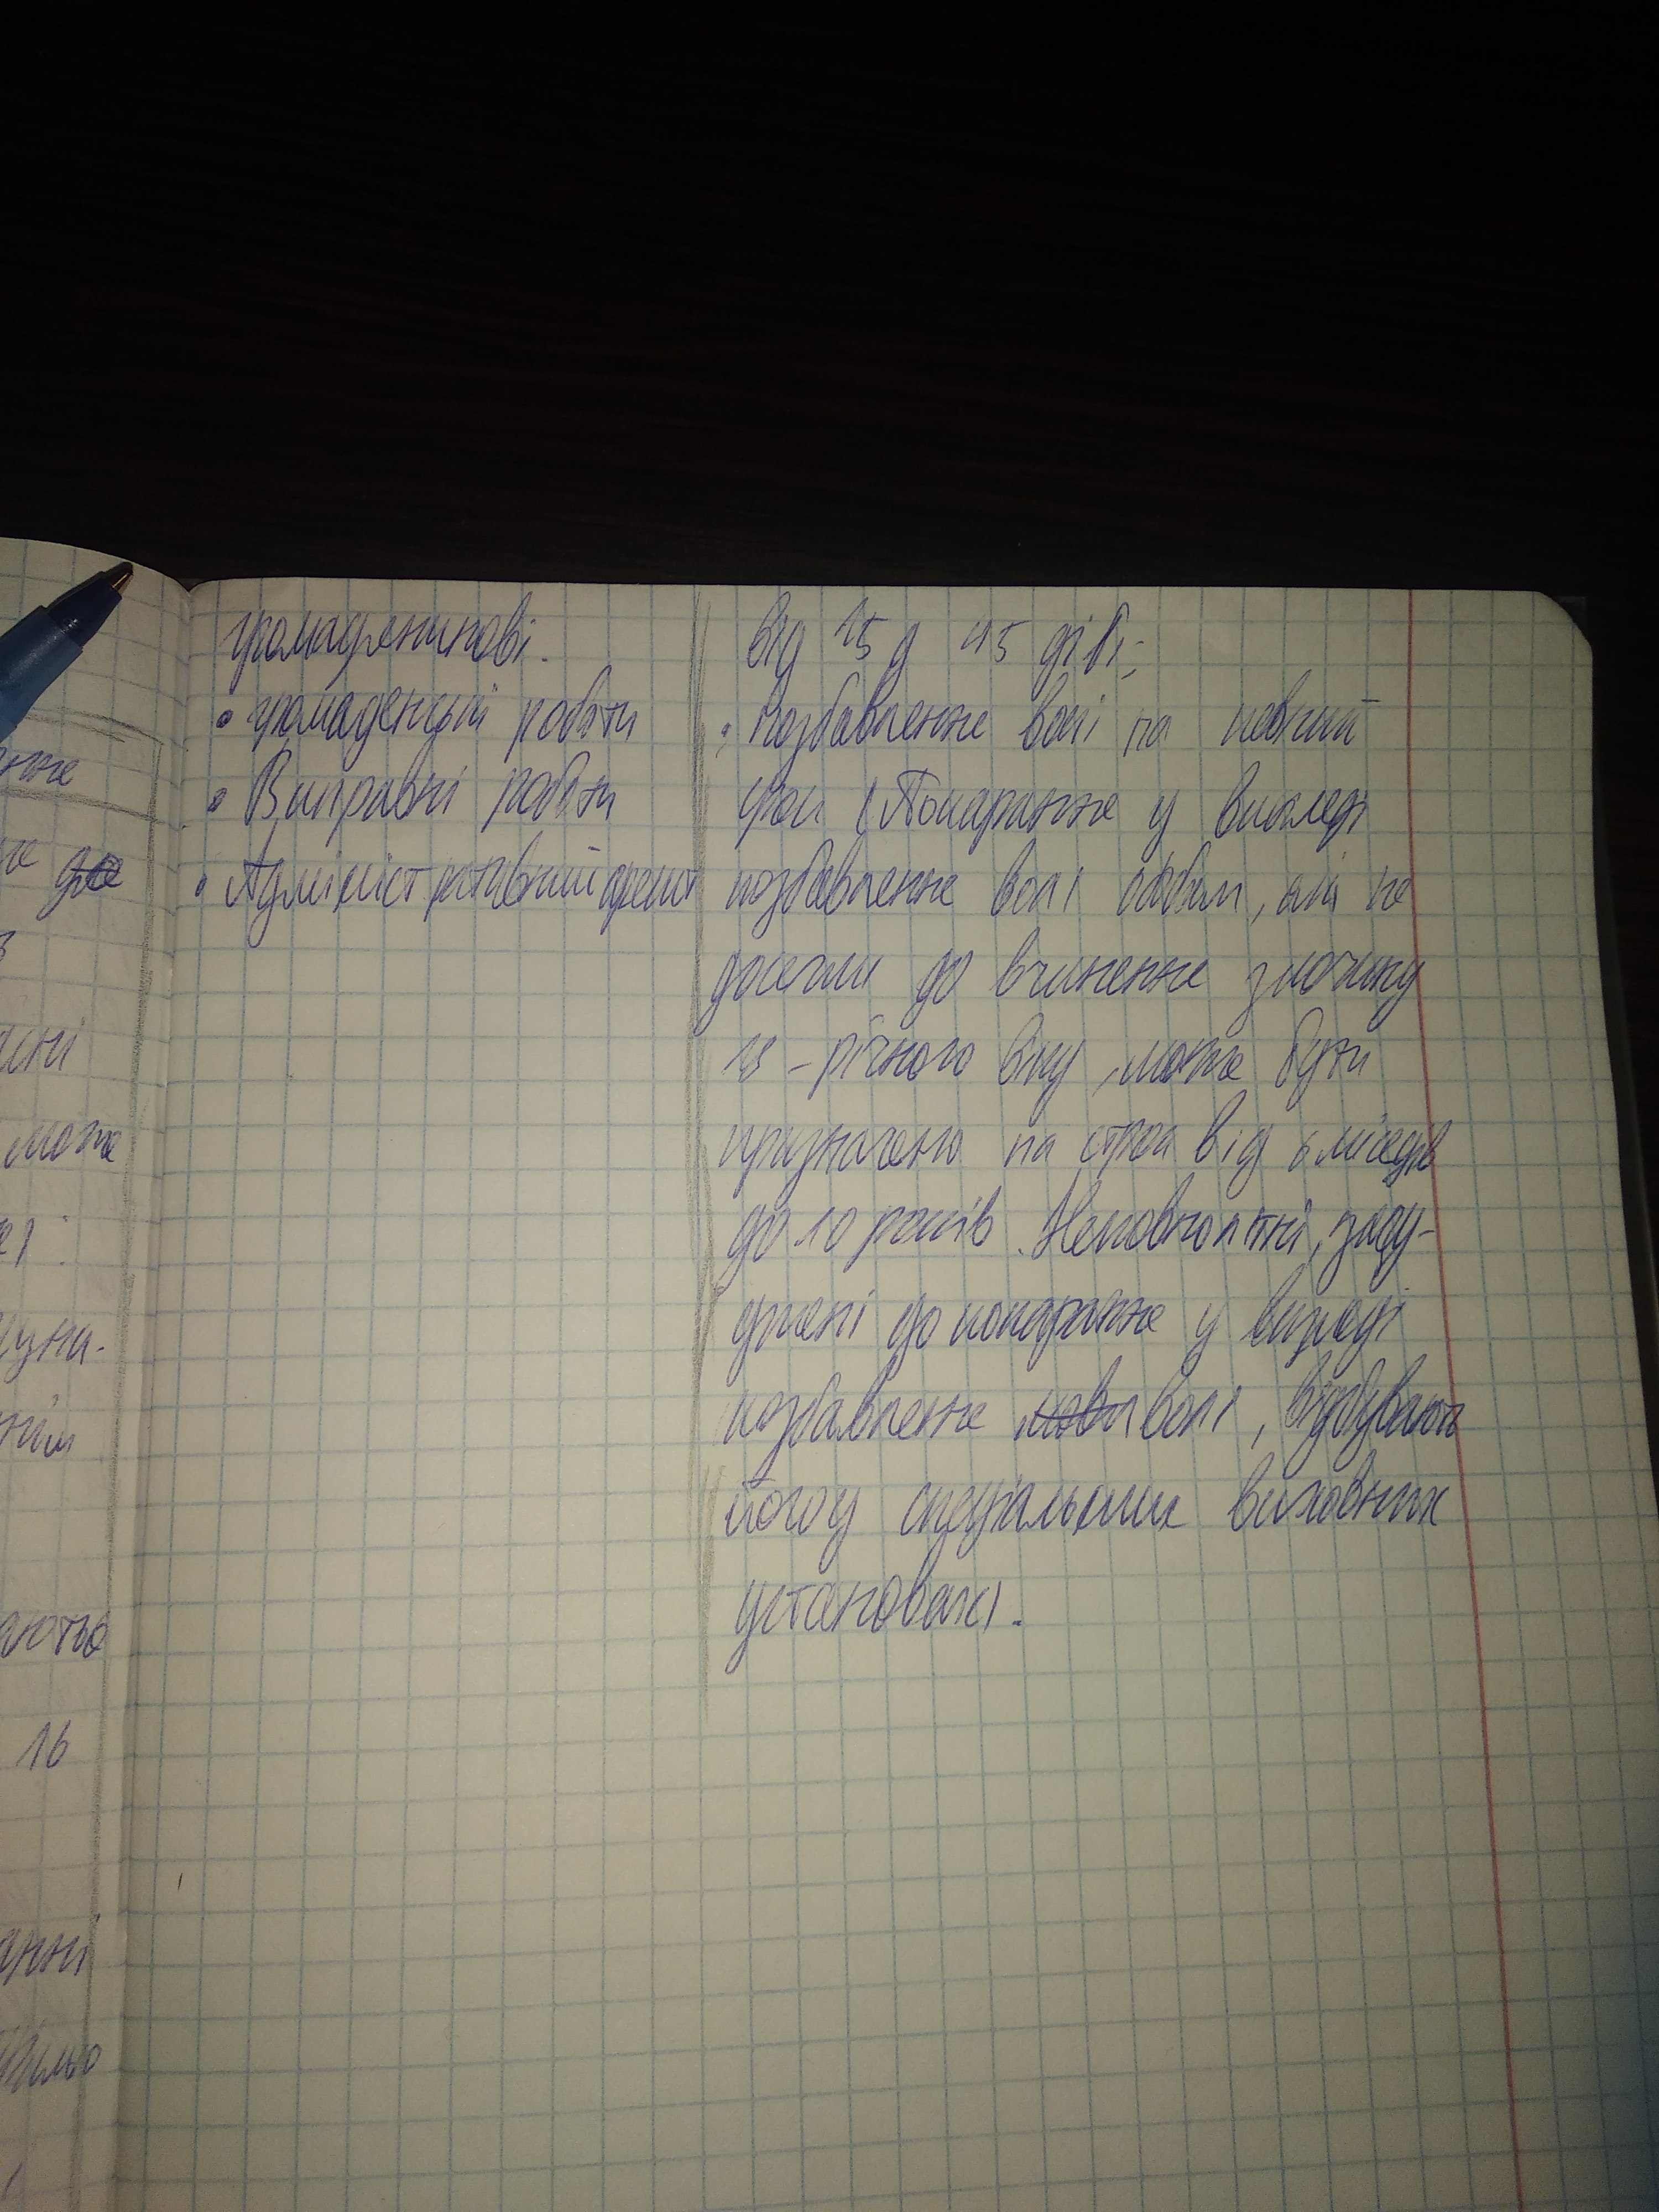 громадянинові.
• громаденські роботи
• Виправні роботи
• Адміністративний арешт
від 15 д 45 діб;
• позбавлення волі на певний
срок (Покарання у вигляді
позбавлення волі особам, які не
досягли до вчинення злочину
18-річного віку, може бути
призначено на строк від 6 місяців
до 10 років. Неповнолітні, засу-
джені до покарання у вигляді
позбавлення волі, відбувають
його у спеціальних виховних
установах.
ння
же
асні
може
аються
16
анні